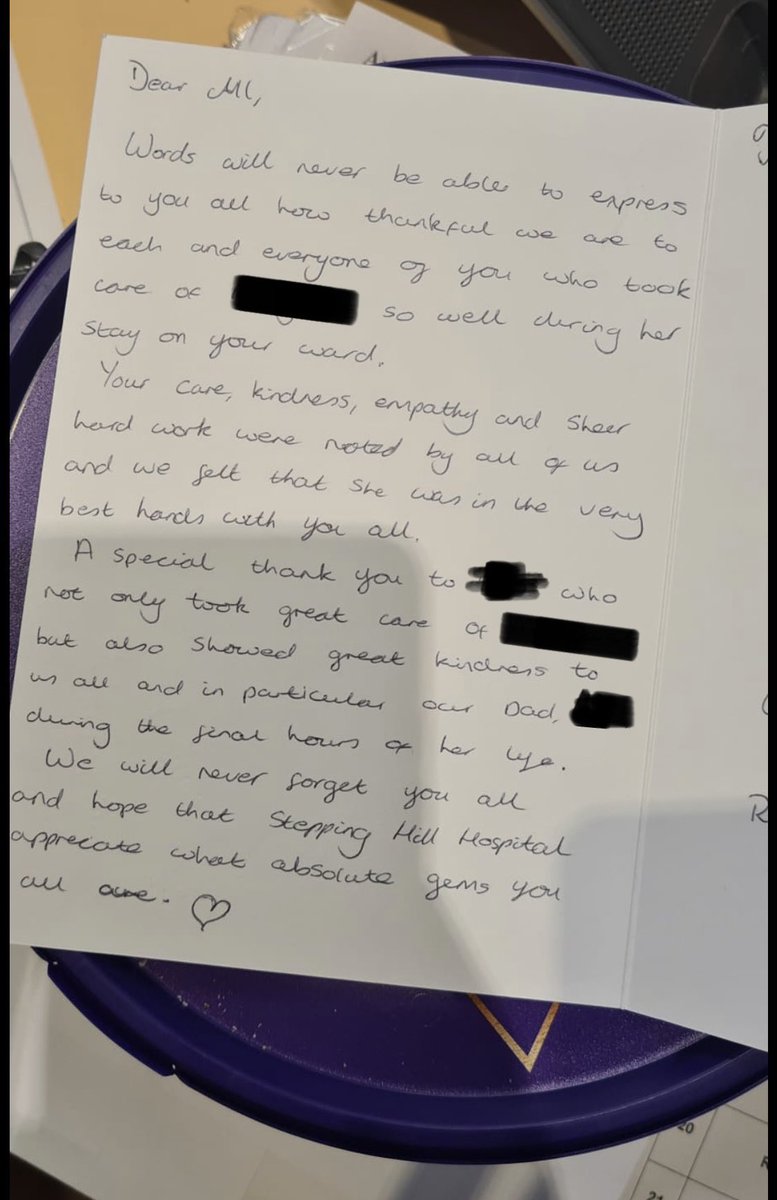 Dear M1,
Words will never be able to express
to you all how thankful we are to
each and everyone of you who took
care of so well during her
stay on your ward.
Your care, kindness, empathy and sheer
hard work were noted by all of us
and we felt that she was in the very
best hands with you all.
A special thank you to who
not only took great care of
but also showed great kindness to
us all and in particular our Dad,
during the final hours of her life.
We will never forget you all
and hope that Stepping Hill Hospital
apprecate what absolute gems you
all are. ♡
20
21